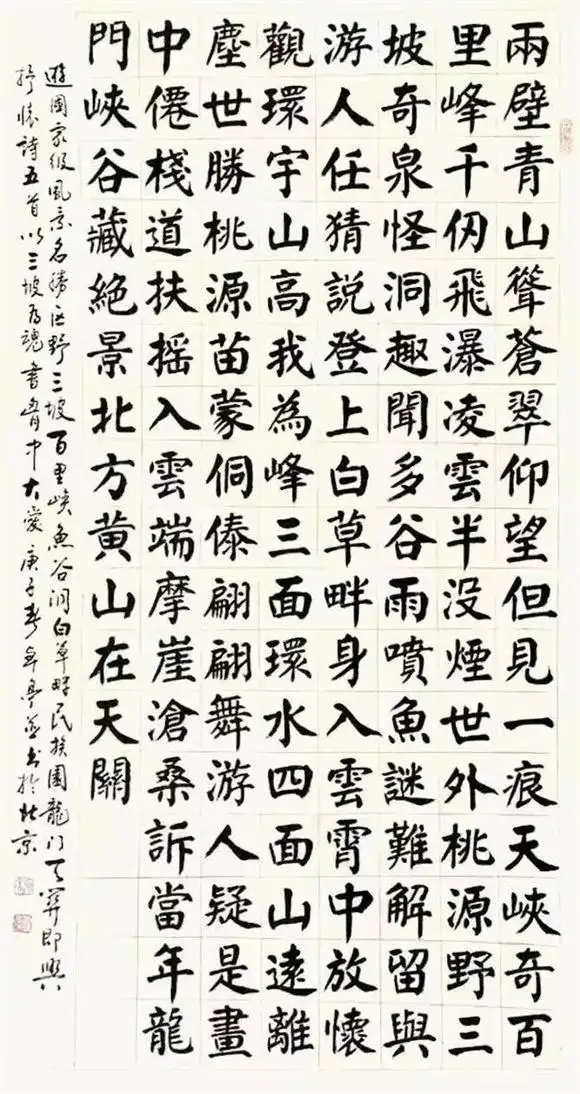 兩壁青山聳蒼翠仰望但見一痕天峽奇百
里峰千仞飛瀑凌雲半没煙世外桃源野三
坡奇泉怪洞趣聞多谷雨噴魚謎難解留與
游人任猜説登上白草畔身入雲霄中放懷
觀環宇山高我為峰三面環水四面山遠離
塵世勝桃源苗蒙侗傣翩翩舞游人疑是畫
中僊棧道扶摇入雲端摩崖滄桑訴當年龍
門峽谷藏絶景北方黄山在天關
遊國家级風景名勝区野三坡百里峡魚谷洞白草畔民族園龍门天関即興
抒懷詩五首以三坡為魂書胷中大愛庚子春年亭並书於北京